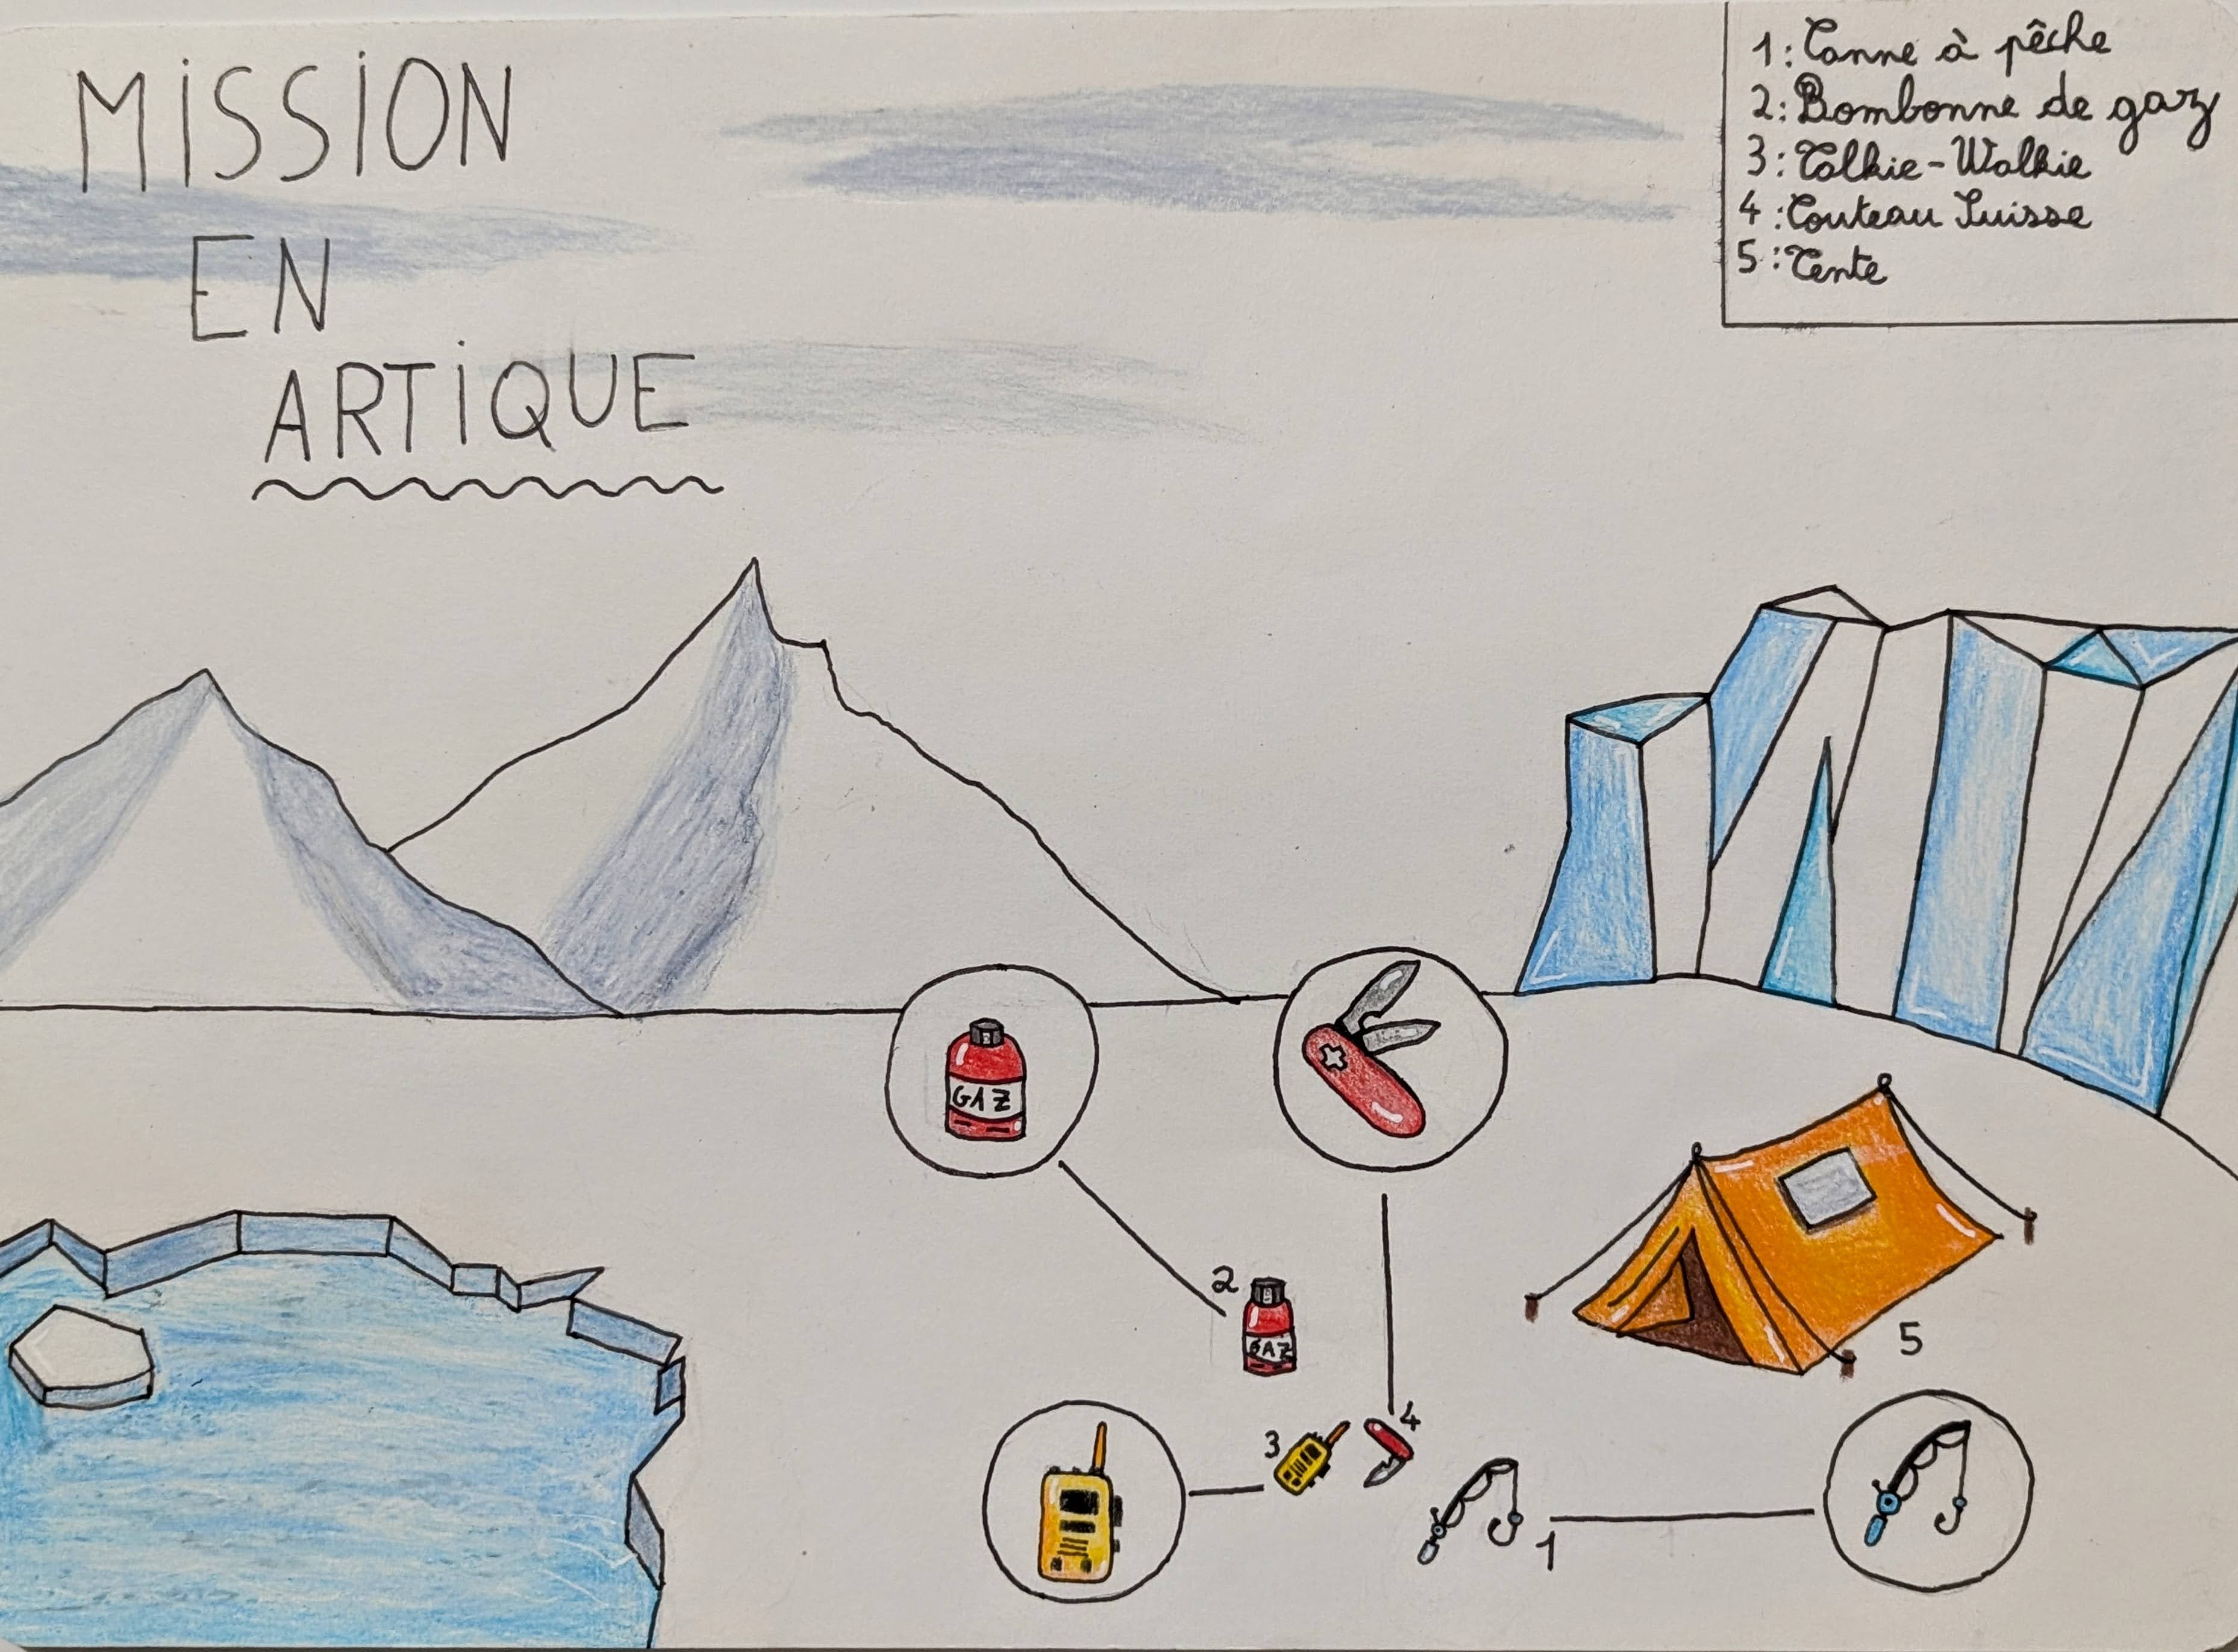 MISSION
EN
ARTIQUE
1: Canne à pêche
2: Bombonne de gaz
3: Talkie-Walkie
4: Couteau Suisse
5: Tente
GAZ
2
GAZ
5
3
4
1